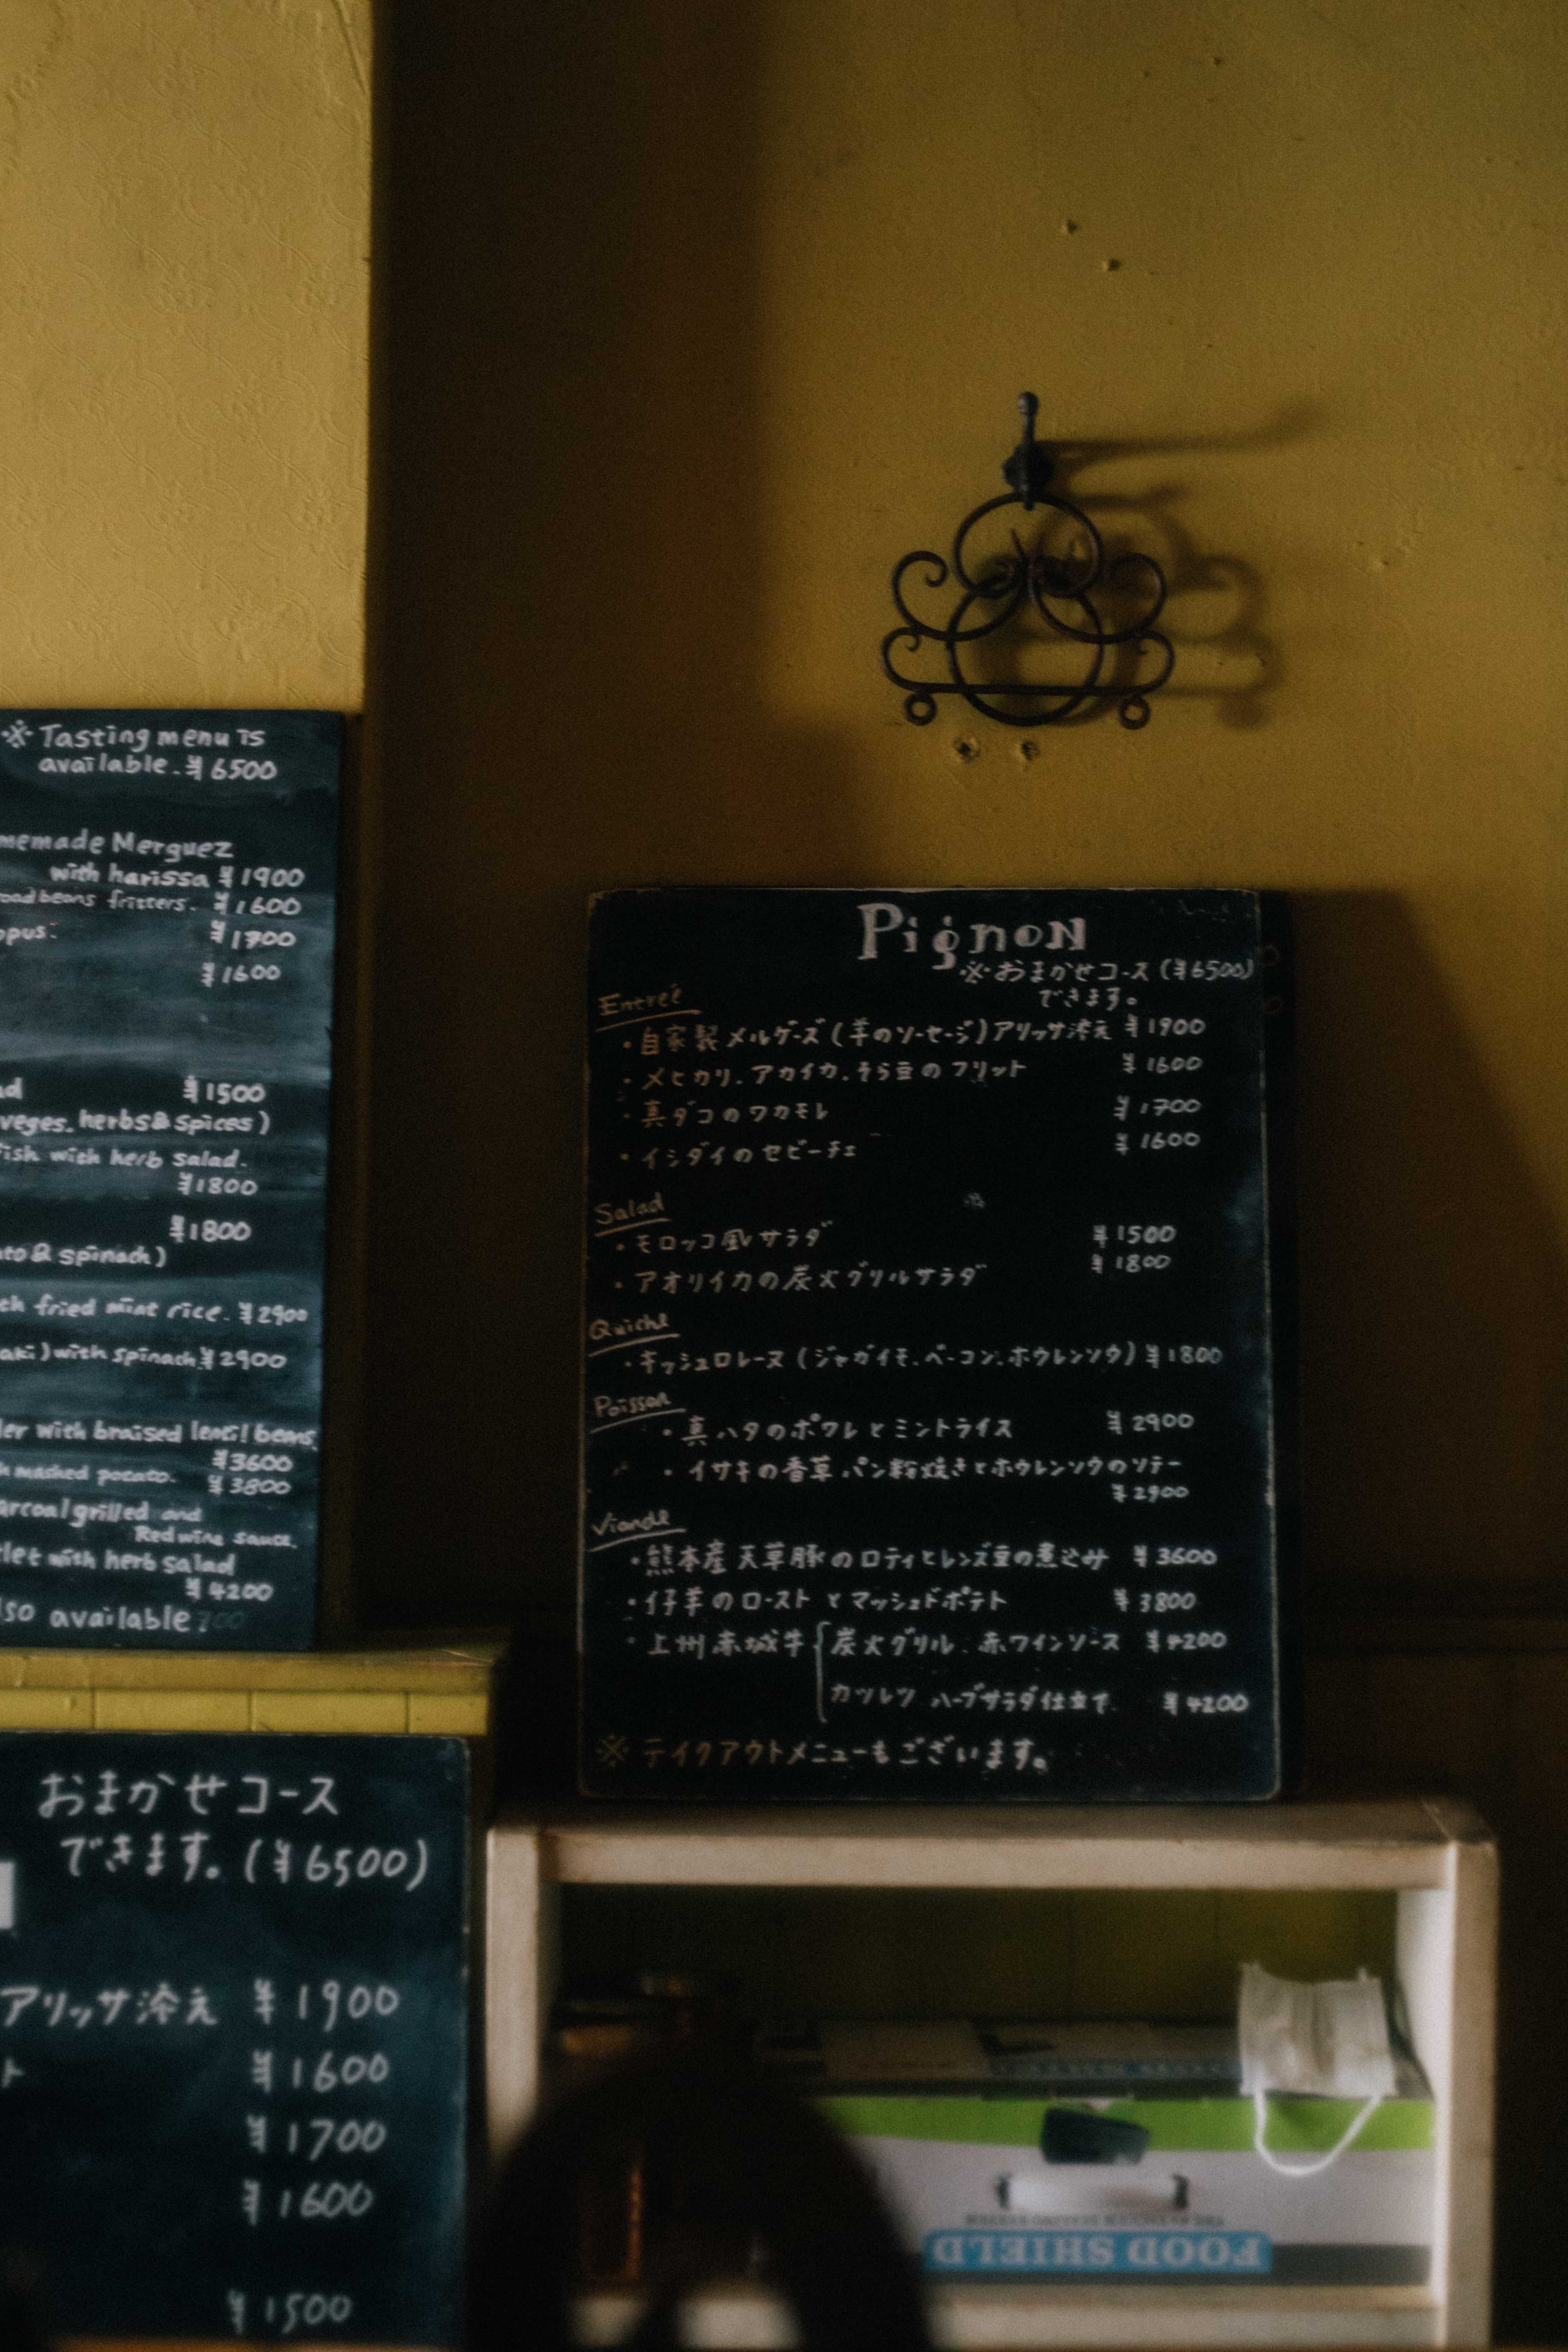 ※Tasting menu is
available. ¥6500
memade Merguez
with harissa ¥1900
oad beans fritters. ¥1600
opus. ¥1700
¥1600
ad ¥1500
veges. herbs & spices)
fish with herb salad.
¥1800
¥1800
to & spinach)
th fried mint rice. ¥2900
aki) with spinach ¥2900
er with braised lentil beans
¥3600
h mashed potato. ¥3800
arcoal grilled and
Red wine sauce.
let with herb salad
¥4200
lso available
Pignon
※おまかせコース(¥6500)
できます。
Entreé
・自家製メルゲーズ(羊のソーセージ)アリッサ添え ¥1900
・メヒカリ、アカイカ、そら豆のフリット ¥1600
・真ダコのワカモレ ¥1700
・イシダイのセビーチェ ¥1600
Salad
・モロッコ風サラダ ¥1500
・アオリイカの炭火グリルサラダ ¥1800
Quiche
・キッシュロレーヌ(ジャガイモ、ベーコン、ホウレンソウ) ¥1800
Poisson
・真ハタのポワレとミントライス ¥2900
・イサキの香草パン粉焼きとホウレンソウのソテー
¥2900
Viande
・熊本産天草豚のロティとレンズ豆の煮込み ¥3600
・仔羊のローストとマッシュドポテト ¥3800
・上州赤城牛 炭火グリル、赤ワインソース ¥4200
カツレツ ハーブサラダ仕立て ¥4200
※テイクアウトメニューもございます。
おまかせコース
できます。(¥6500)
アリッサ添え ¥1900
ト ¥1600
¥1700
¥1600
¥1500
FOOD SHIELD